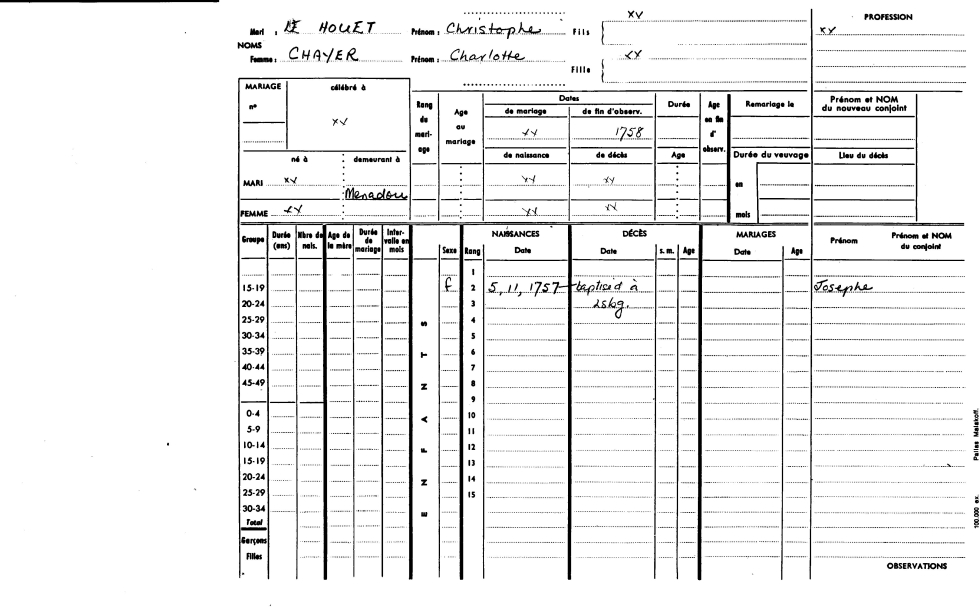 xx PROFESSION
Mari : LE HOUET Prénom : Christophe Fils xx
NOMS
Femme : CHAYER Prénom : Charlotte Fille xx
MARIAGE célébré à
nº xx
Rang du mariage
Age au mariage
Dates
de mariage de fin d'observ.
xx 1758
Durée
Age en fin d' observ.
Remariage le
Prénom et NOM du nouveau conjoint
né à demeurant à
de naissance de décès Age
Durée du veuvage
Lieu du décès
MARI xx xx xx en
Menadou
FEMME xx xx xx mois
Groupe Durée (ans) Nbre de nais. Age de la mère Durée de mariage Intervalle en mois Sexe Rang NAISSANCES Date DÉCÈS Date s. m. Age MARIAGES Date Age Prénom Prénom et NOM du conjoint
ENFANTS
1
15-19 f 2 5, 11, 1757 baptised à Josephe
20-24 3 Lsbg.
25-29 4
30-34 5
35-39 6
40-44 7
45-49 8
9
0-4 10
5-9 11
10-14 12
15-19 13
20-24 14
25-29 15
30-34
Total
Garçons
Filles
OBSERVATIONS
100.000 ex. Pallas Malakoff.